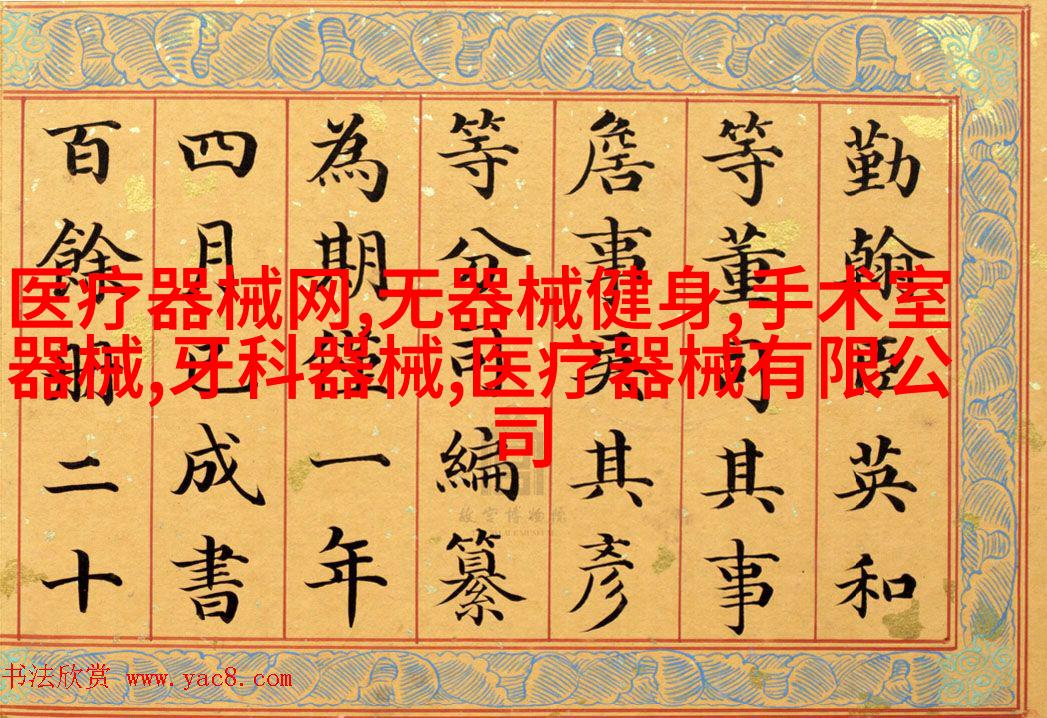 勤翰臣英和
等董司其事
詹事吳其彥
等分司編纂
為期僅一年
四月已成書
百餘冊二十
医疗器械网,无器械健身,手术室
器械,牙科器械,医疗器械有限公
司
故宫博物院
书法欣赏 www.yac8.com